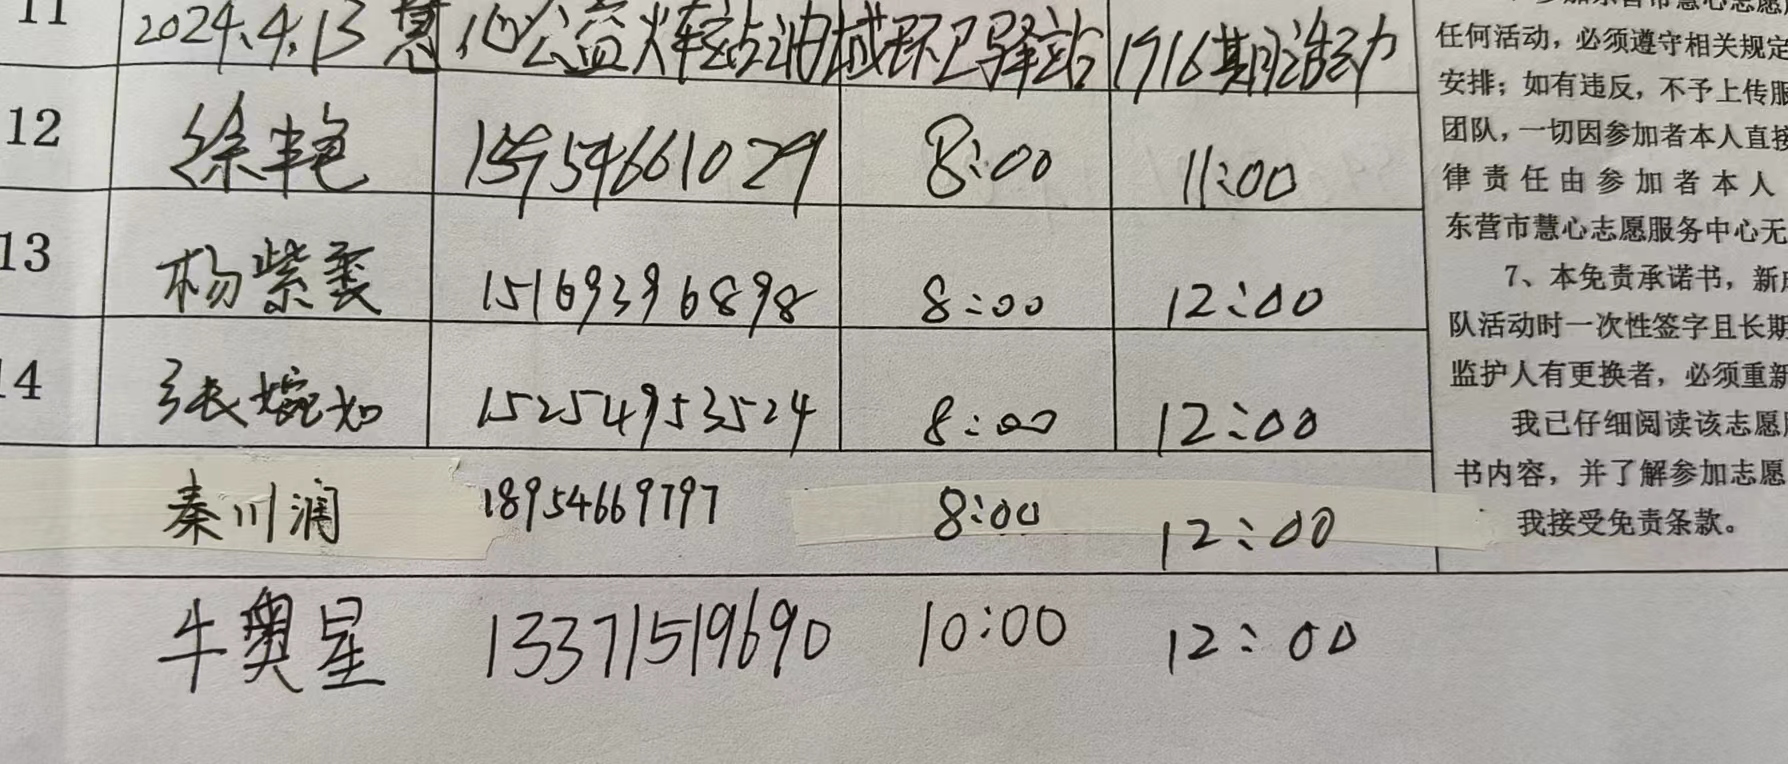 11 2024.4.13 慧心公益火车站油城环卫驿站1916期活动
12 徐丰艳 15954661029 8:00 11:00
13 杨紫雲 15169396898 8:00 12:00
14 张婉如 15254953524 8:00 12:00
秦川润 18954669797 8:00 12:00
牛奥星 13371519690 10:00 12:00
任何活动，必须遵守相关规定
安排；如有违反，不予上传服
团队，一切因参加者本人直接
律责任由参加者本人
东营市慧心志愿服务中心无
7、本免责承诺书，新
队活动时一次性签字且长期
监护人有更换者，必须重新
我已仔细阅读该志愿
书内容，并了解参加志愿
我接受免责条款。